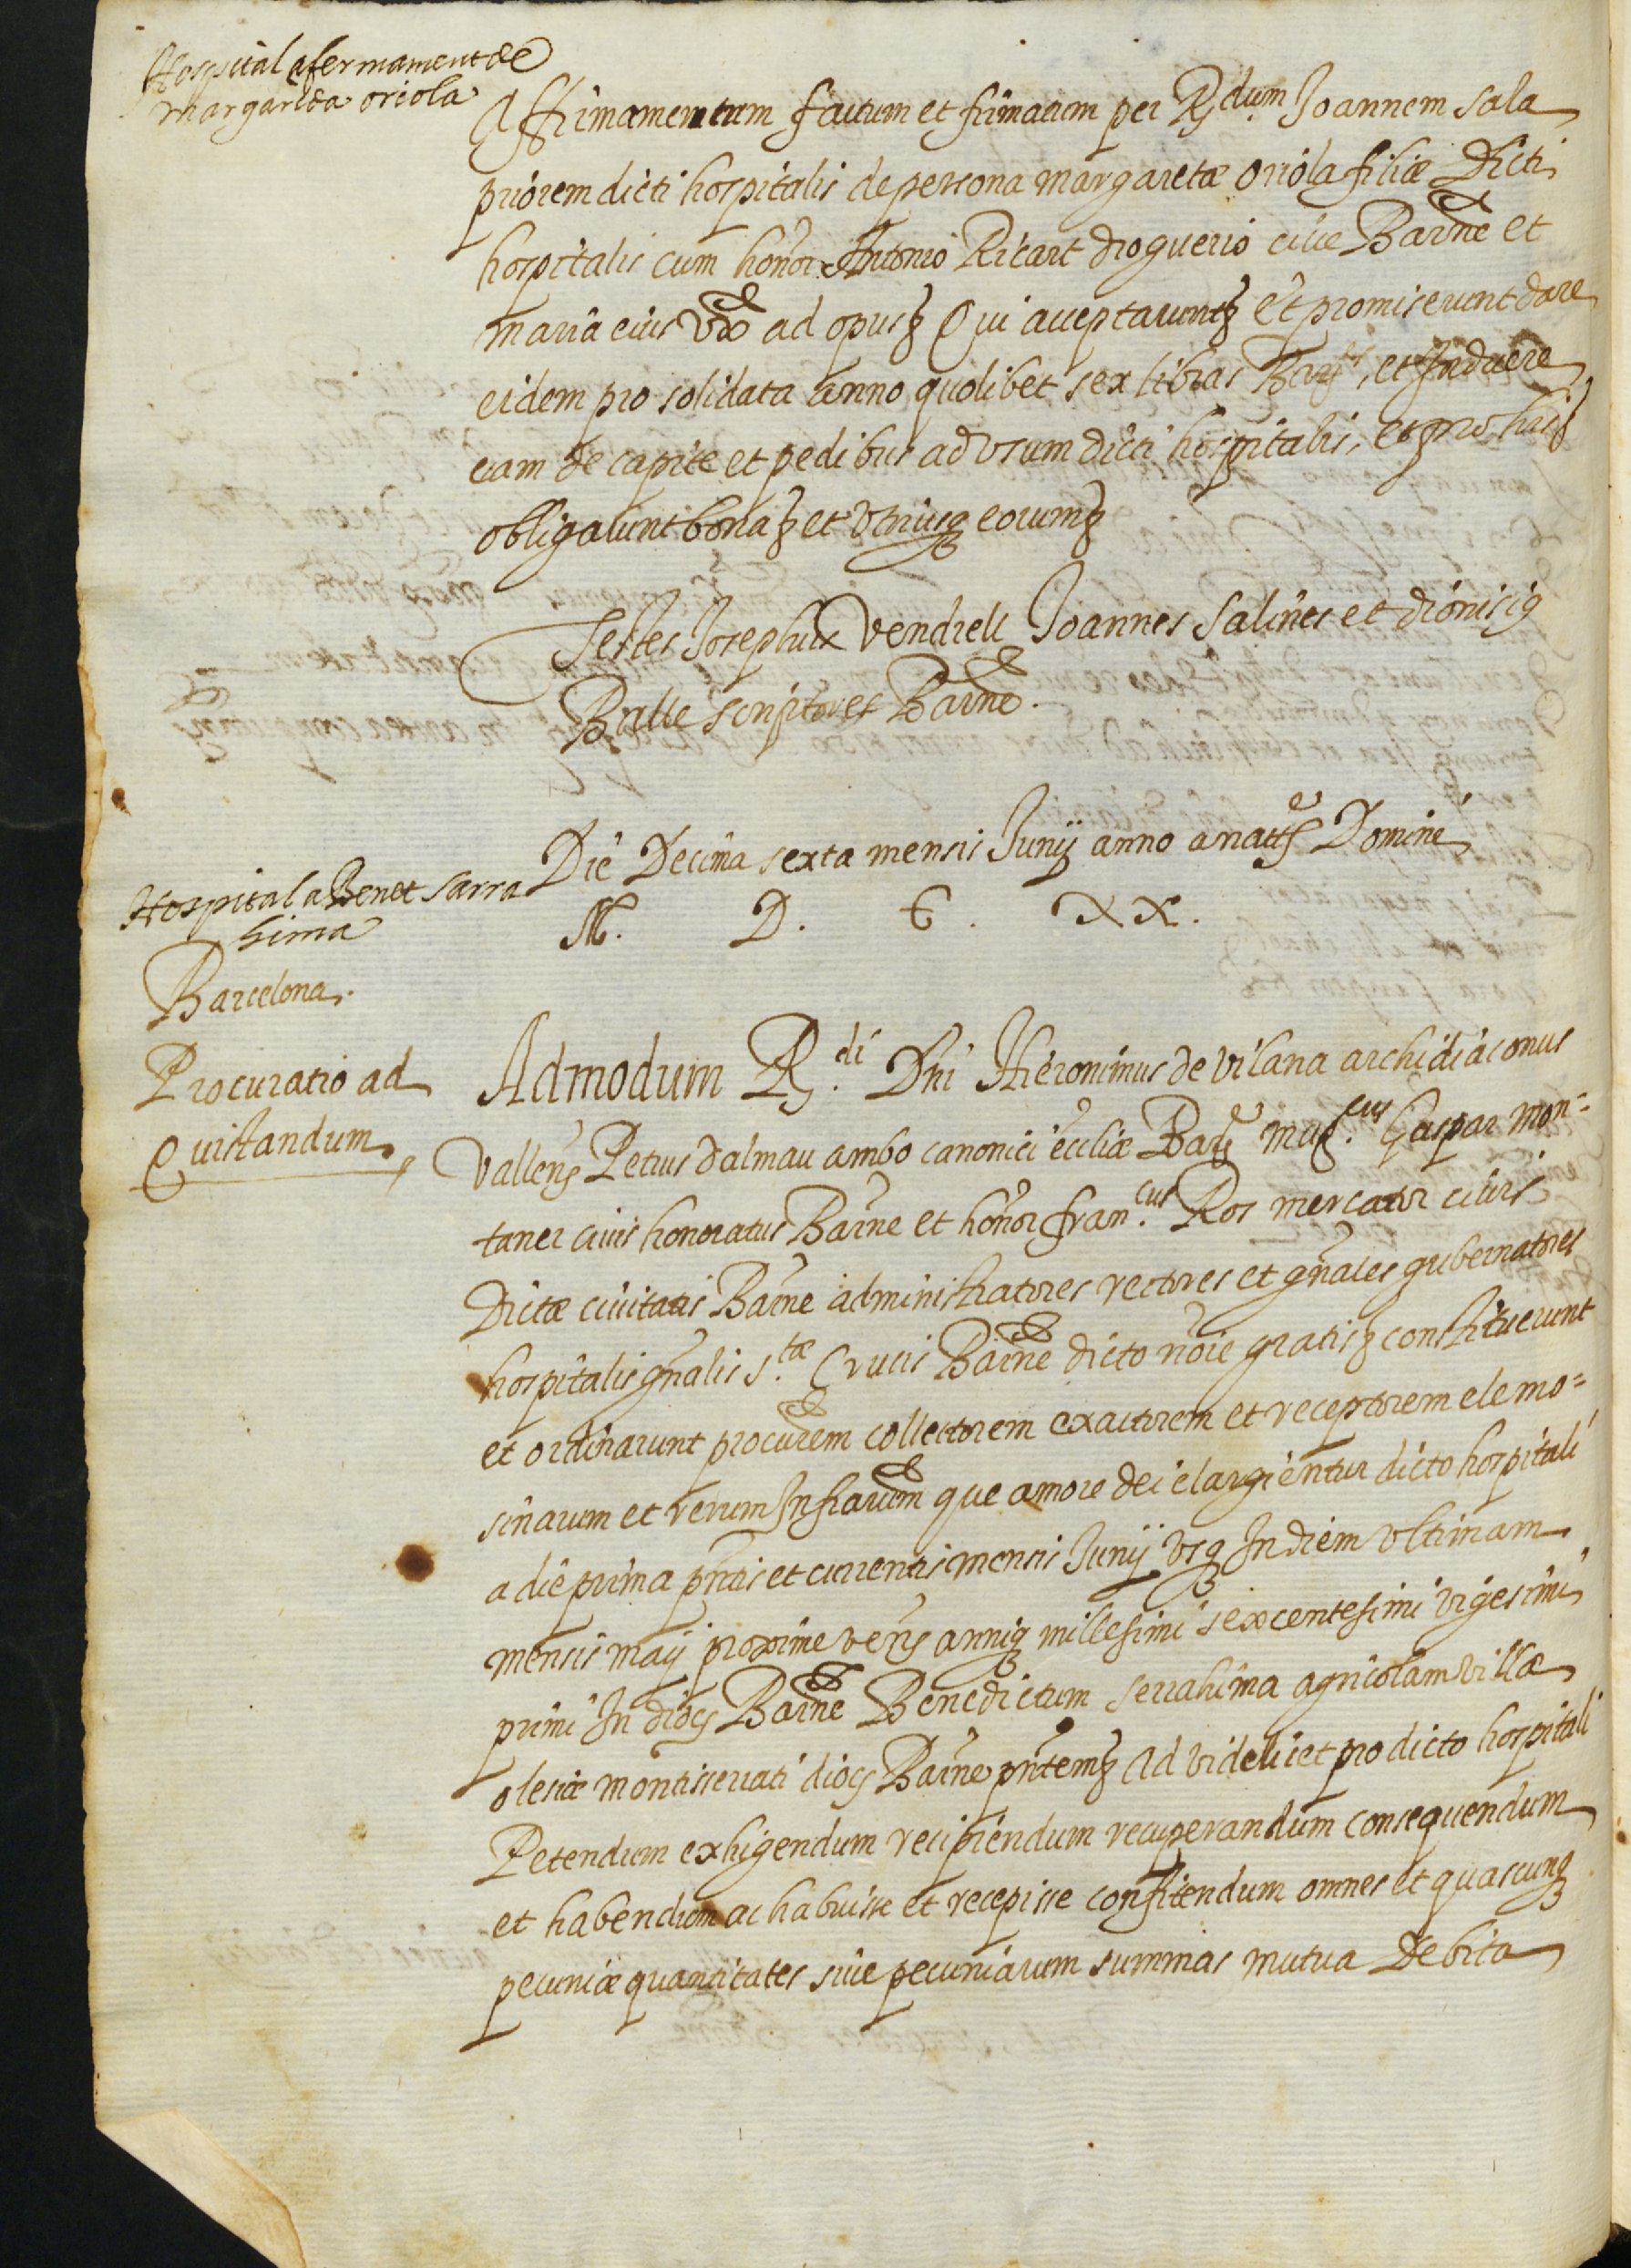 Hospital afermament de
margarida oriola
Affirmamentum factum et firmatum per R.dum Joannem Sala
priorem dicti hospitalis de persona margaretæ oriola filiæ Dicti
hospitalis cum honor. Antonio Ricart droguerio cive Barñe et
maria eius vx.e ad opus &c Qui acceptarunt &c et promiserunt dare
eidem pro solidata anno quolibet sex libras Barç.s, et Induere
eam de capite et pedibus ad vsum dicti hospitalis, et pro his &c
obligarunt bona &c et vtriusq eorum &c
Testes Josephus Vendrell Joannes Salines et dionisiꝰ
Balle scriptores Barñe.
Die Decima sexta mensis Junij anno a nat.e Domine
M. D. C. XX.
Hospital a Benet Sarra
hima
Barcelona.
Procuratio ad
Quistandum,
Admodum R.di Dñi Hieronimus de Vilana archidiaconus
Vallenꝭ Petrus dalmau ambo canonici eccliæ Barꝭ mag.cus Gaspar mon=
taner civis honoratus Barñe et honor. fran.cus Ros mercator civis
Dictæ civitatis Barñe administratores rectores et gñales gubernatores
hospitalis gñalis s.tæ Crucis Barñe dicto noie gratis &c constituerunt
et ordinarunt procurem collectorem exactorem et receptorem elemo=
sinarum et rerum Infrarum que amore dei elargientur dicto hospitali
a die prima pñtis et currentis mensis Junij vsq In diem vltimam
mensis maij proxime venꝭ anniq millesimi sexcentesimi vigesimi
primi In diocꝭ Barñe Benedictum serrahima agricolam villæ
olesiæ montisserrati diocꝭ Barñe pñtem &c Ad videlicet pro dicto hospitali
Petendum exhigendum recipiendum recuperandum consequendum
et habendum ac habuisse et recepisse confitendum omnes et quascunq
pecuniæ quantitates sive pecuniarum summas mutua Debita